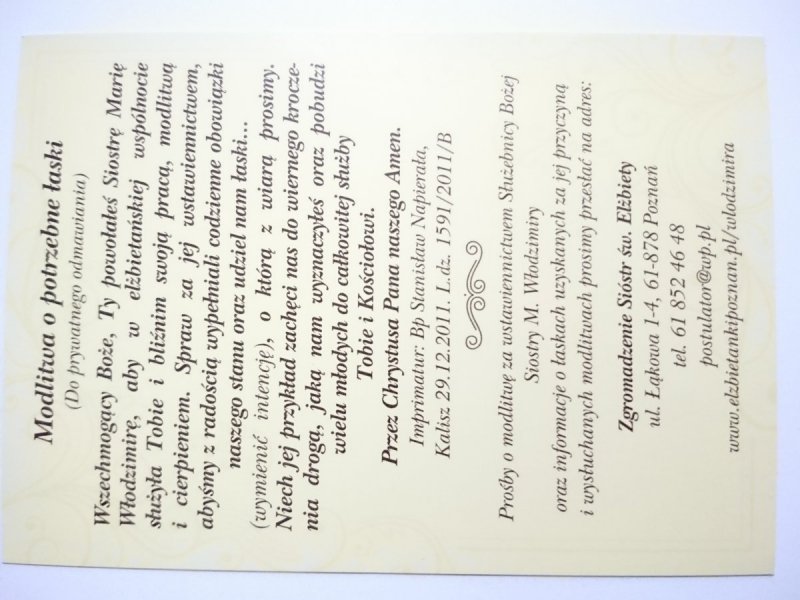 Modlitwa o potrzebne łaski
(Do prywatnego odmawiania)
Wszechmogący Boże, Ty powołałeś Siostrę Marię
Włodzimirę, aby w elżbietańskiej wspólnocie
służyła Tobie i bliźnim swoją pracą, modlitwą
i cierpieniem. Spraw za jej wstawiennictwem,
abyśmy z radością wypełniali codzienne obowiązki
naszego stanu oraz udziel nam łaski...
(wymienić intencję), o którą z wiarą prosimy.
Niech jej przykład zachęci nas do wiernego krocze-
nia drogą, jaką nam wyznaczyłeś oraz pobudzi
wielu młodych do całkowitej służby
Tobie i Kościołowi.
Przez Chrystusa Pana naszego Amen.
Imprimatur: Bp Stanisław Napierała,
Kalisz 29.12.2011. L.dz. 1591/2011/B
Prośby o modlitwę za wstawiennictwem Służebnicy Bożej
Siostry M. Włodzimiry
oraz informacje o łaskach uzyskanych za jej przyczyną
i wysłuchanych modlitwach prosimy przesłać na adres:
Zgromadzenie Sióstr św. Elżbiety
ul. Łąkowa 1-4, 61-878 Poznań
tel. 61 852 46 48
postulator@wp.pl
www.elzbietankipoznan.pl/wlodzimira